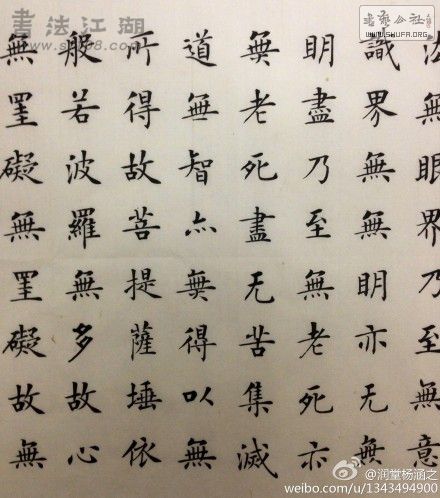 法無眼界乃至無意
識界無無明亦无無
明盡乃至無老死亦
無老死盡无苦集滅
道無智亦無得以無
所得故菩提薩埵依
般若波羅無多故心
無罣礙無罣礙故無
書法江湖
書藝公社
WWW.SHUFA.ORG
@润堂杨涵之
weibo.com/u/1343494900